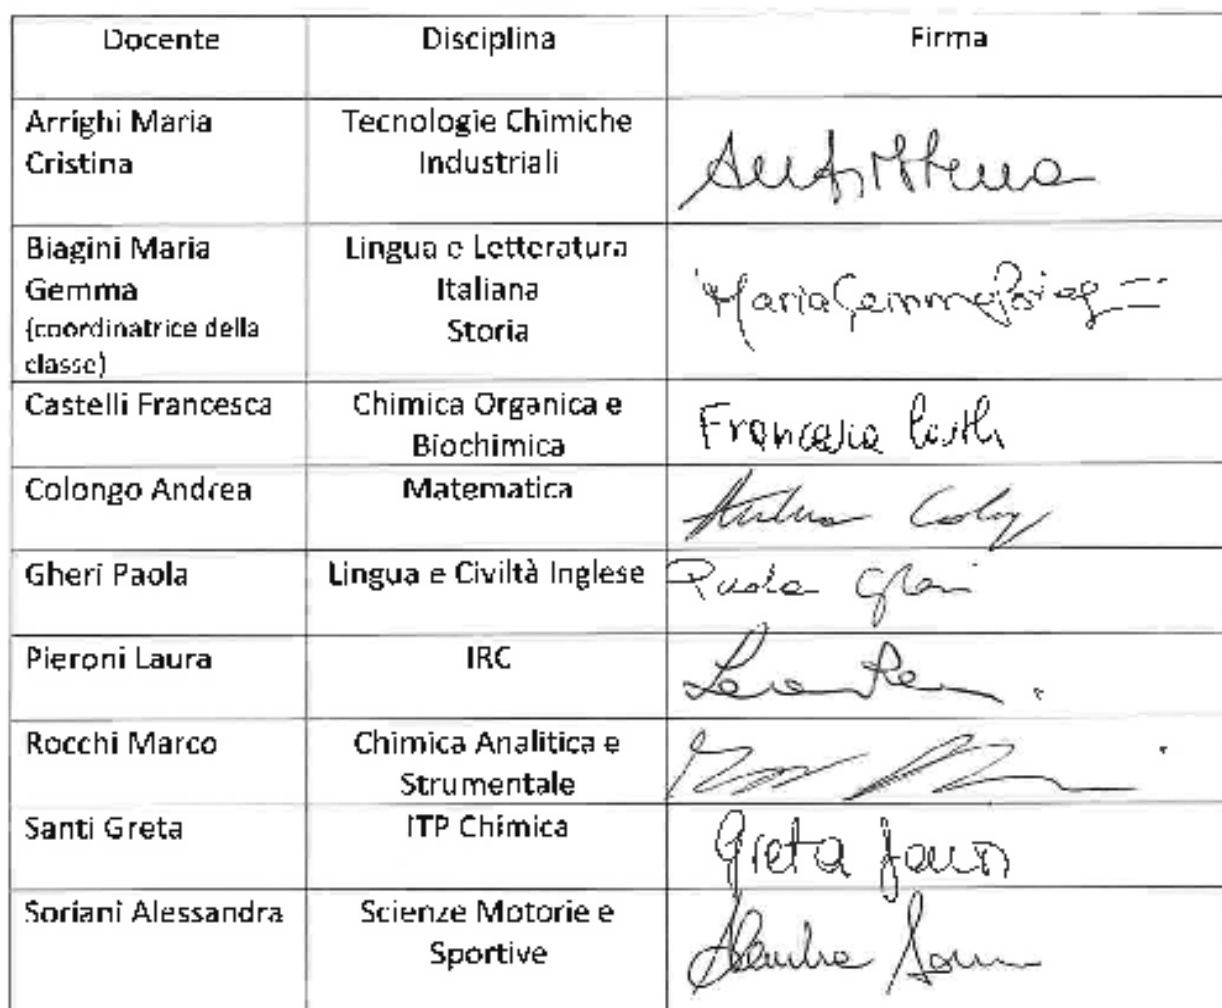 Docente Disciplina Firma
Arrighi Maria Tecnologie Chimiche
Cristina Industriali
Biagini Maria Lingua e Letteratura
Gemma Italiana
(coordinatrice della Storia
classe)
Maria Gemma Biag
Castelli Francesca Chimica Organica e
Biochimica
Francesca
Colongo Andrea Matematica
Andrea
Gheri Paola Lingua e Civiltà Inglese Paola Gheri
Pieroni Laura IRC
Rocchi Marco Chimica Analitica e
Strumentale
Santi Greta ITP Chimica
Greta Santi
Soriani Alessandra Scienze Motorie e
Sportive